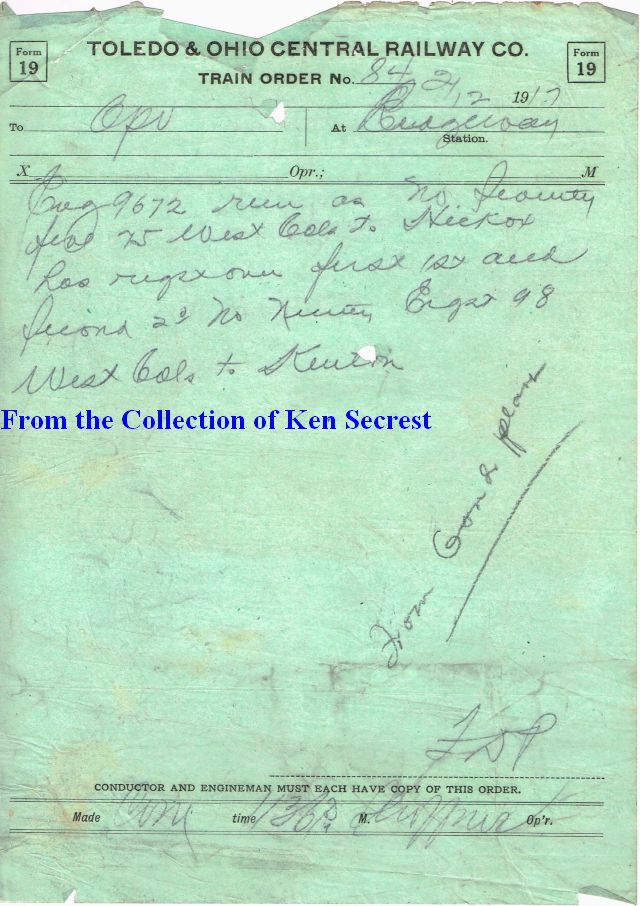 Form 19
TOLEDO & OHIO CENTRAL RAILWAY CO.
Form 19
TRAIN ORDER No. 84
2/12 1917
To Opr At Ridgeway Station.
X Opr.; M
Eng 9672 run as No Seventy
five 75 West Cols to Hickox
has right over first 1st and
Second 2d No Ninety Eight 98
West Cols to Kenton
From the Collection of Ken Secrest
From Con &
CONDUCTOR AND ENGINEMAN MUST EACH HAVE COPY OF THIS ORDER.
Made Com time 136 P M. Op'r.